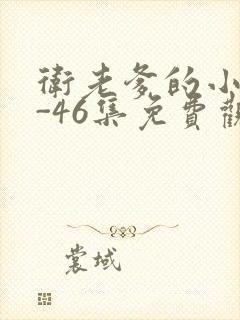 衛老爹的小
-46集免費觀
裳域